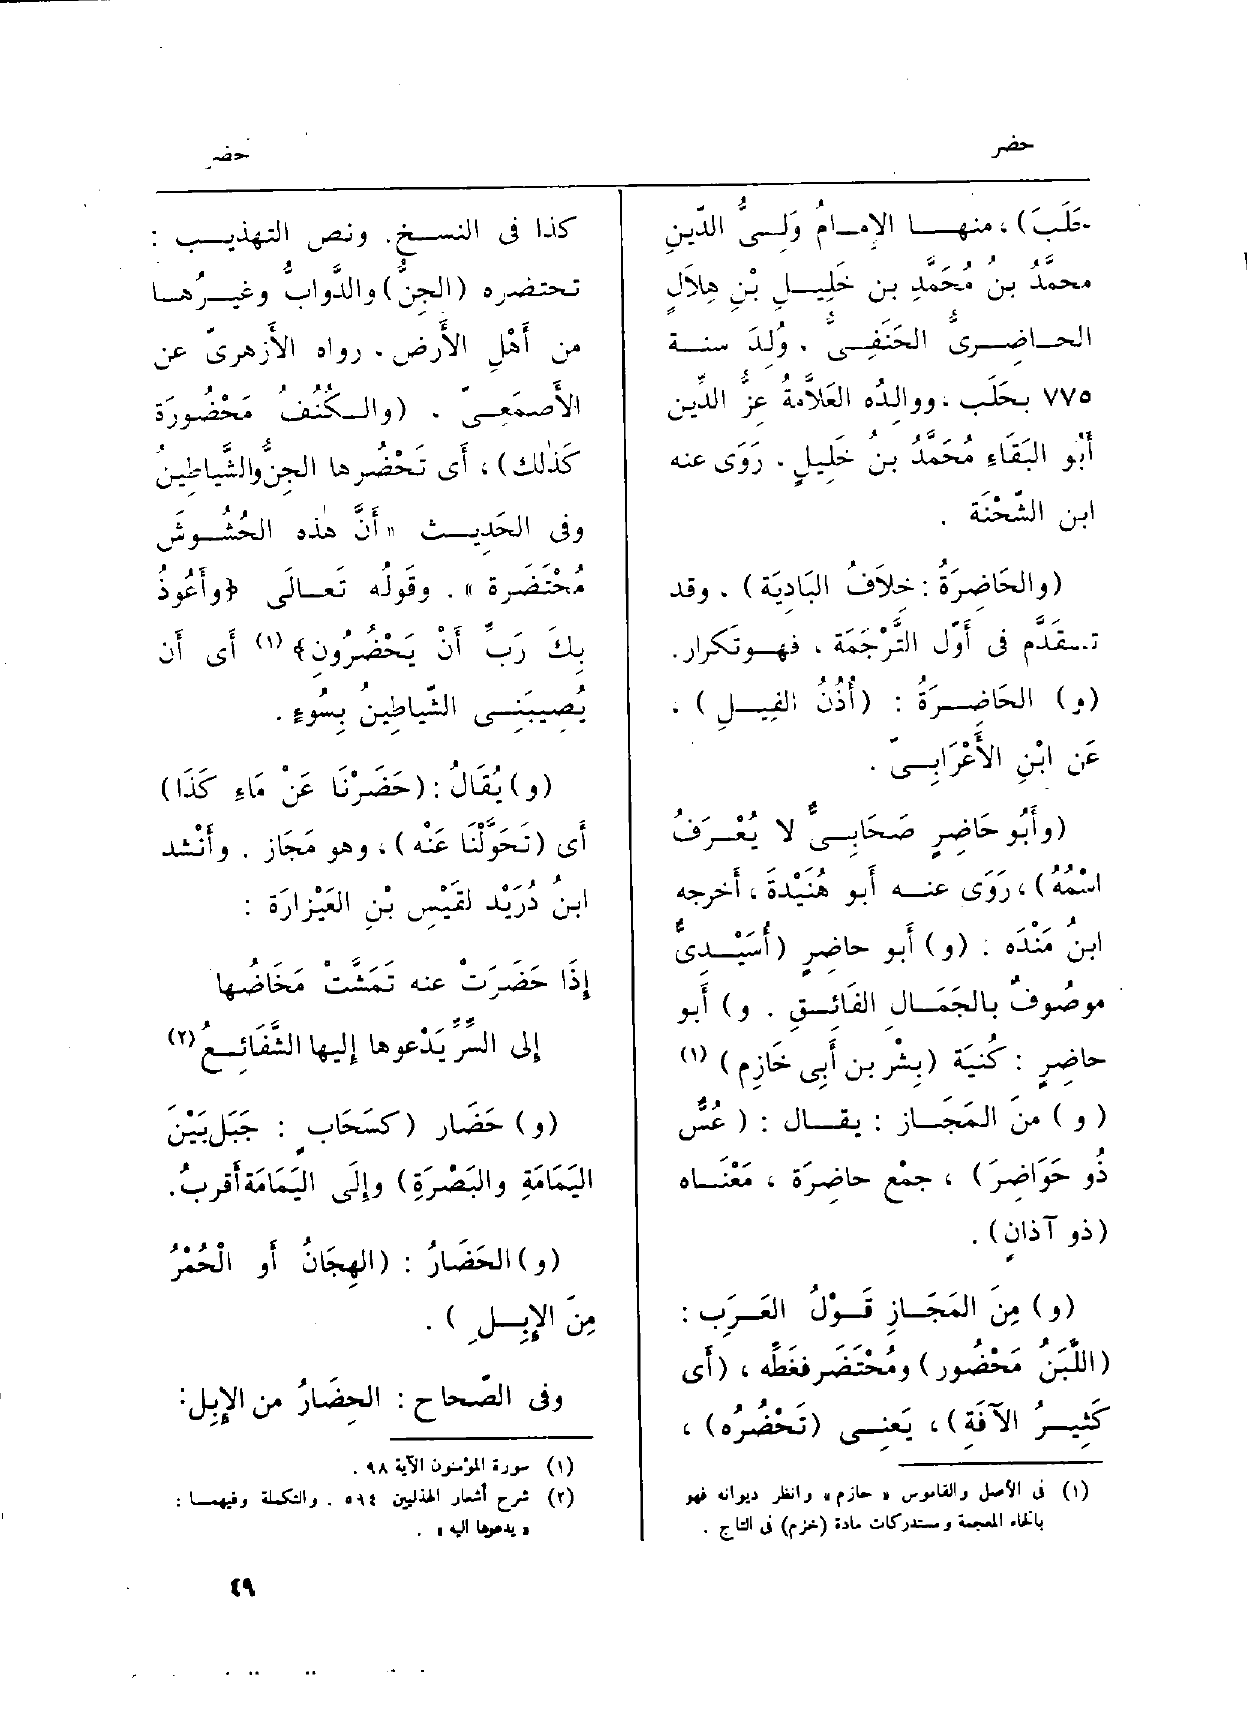 حضر
حضر
حَلَبَ) ، منهــا الإمـامُ وَلـىُّ الدّينِ
محمَّدُ بنُ مُحَمَّدِ بن خَلِيــلِ بْنِ هِلاَلٍ
الحـاضِــرىُّ الحَنَفِــىُّ . وُلِدَ سنــة
٧٧٥ بحَلَب ، ووالدُه العَلاَّمةُ عِزُّ الدِّين
أَبُو البَقَاءِ مُحَمَّدُ بنُ خَلِيلٍ . رَوَى عنه
ابن الشِّحْنَة .
(والحَاضِرَةُ : خِلاَفُ البَادِيَة) . وقد
تـقدَّم فى أَوّل التَّرْجَمَة ، فهـو تكرار.
(و) الحَاضِــرَةُ : (أُذُنُ الفِيــلِ) ،
عَن ابْنِ الأَعْرَابِــىّ .
(وأَبُو حَاضِرٍ صَحَابِــىٌّ لا يُعْــرَفُ
اسْمُهُ) ، رَوَى عنــه أَبو هُنَيْدَةَ ، أَخرجه
ابنُ مَنْدَه . (و) أَبو حاضِرٍ (أُسَيْــدِىٌّ
موصُوفٌ بالجَمَالِ الفَائِــقِ . و) أَبو
حاضِرٍ : كُنيَة (بِشْر بن أَبى خَازِم) (١)
(و) منَ المَجَــاز : يقــال : (عُسٌّ
ذُو حَوَاضِرَ) ، جمْع حاضِرَة ، مَعْنَــاه
(ذو آذانٍ) .
(و) مِنَ المَجَــازِ قَــوْلُ العَــرَبِ :
(اللَّبَنُ مَحْضُور) ومُحْتَضَر فغَطِّه ، (أَى
كَثِيــرُ الآفَةِ) ، يَعنــى (تَحْضُرُه) ،
(١) فى الأصل والقاموس « حازم » وانظر ديوانه فهو
بالخاء المعجمة ومستدركات مادة (خزم) فى التاج .
كذا فى النســخ. ونص التهذيــب :
تحتضره (الجِنُّ) والدَّوابُّ وغيــرُهـا
من أَهْلِ الأَرض . رواه الأَزهرىّ عن
الأَصمَعِــىّ . (والــكُنُفُ مَحْضُورَة
كَذٰلك) ، أَى تَحْضُرها الجِنُّ والشَّياطِينُ
وفى الحَدِيــث « أَنَّ هٰذه الحُشُــوشَ
مُحْتَضَرة » . وقَولُه تَعــالَى ﴿وأَعُوذُ
بِكَ رَبِّ أَنْ يَحْضُرُون﴾ (١) أَى أَن
يُصِيبَنِــى الشَّياطِينُ بِسُوءٍ .
(و) يُقَالُ : (حَضَرْنَا عَنْ مَاءِ كَذَا)
أَى (تَحَوَّلْنَا عَنْه) ، وهو مَجَاز . وأَنْشد
ابنُ دُرَيْد لقَيْسِ بْنِ العَيْزارَة :
إِذَا حَضَرَتْ عنه تَمَشَّتْ مَخَاضُها
إلى السِّرِّ يَدْعوها إليها الشَّفَائِــعُ (٢)
(و) حَضَار (كسَحَابٍ : جَبَل بَيْنَ
اليَمَامَةِ والبَصْرَةِ) وإلَى اليَمَامَة أَقربُ.
(و) الحَضَارُ : (الهِجَانُ أَو الْحُمْرُ
مِنَ الإِبِــلِ) .
وفى الصّحاح : الحِضَارُ من الإِبل :
(١) سورة المؤمنون الآية ٩٨ .
(٢) شرح أشعار الهذليين ٥٩٤ . والتكملة وفيهمـا :
« يدعوها اليه » .
٤٩